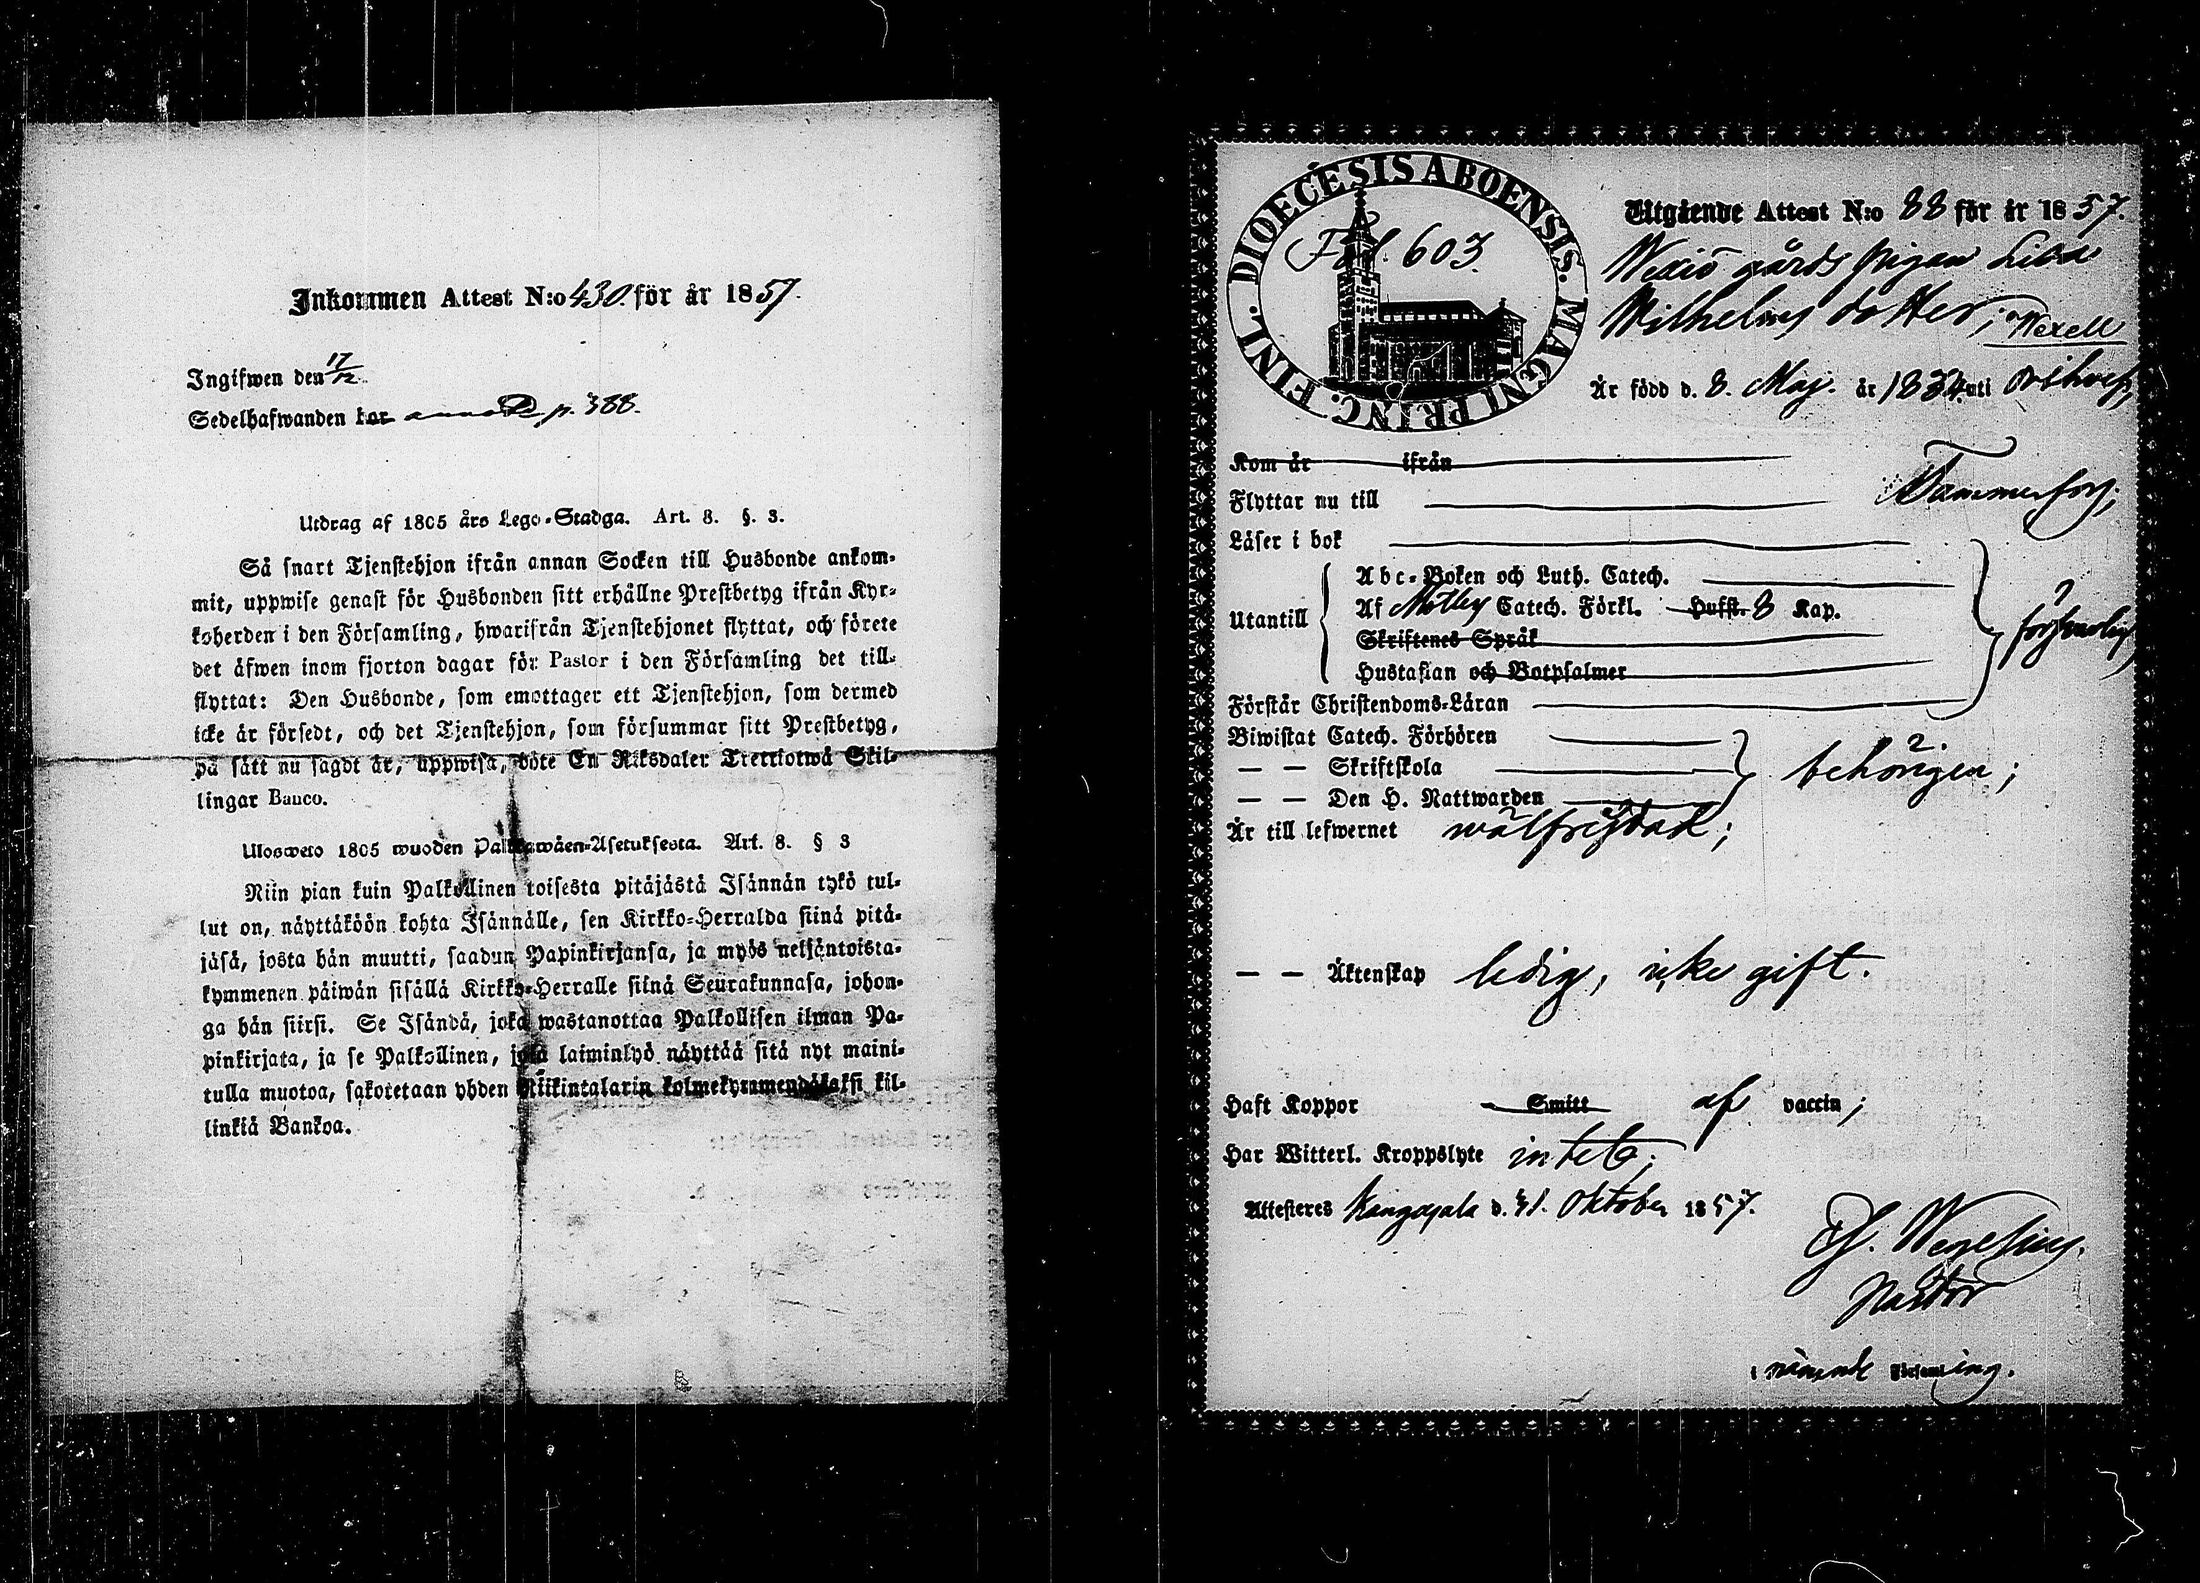 Inkommen Attest N:o 430. för år 1857.
Ingifwen den 17/12.
Sedelhafwanden har p. 388.
Utdrag af 1805 års Lego-Stadga. Art. 8. §. 3.
Så snart Tjenstehjon ifrån annan Socken till Husbonde ankom-
mit, uppwise genast för Husbonden sitt erhållne Prestbetyg ifrån Kyr-
koherden i den Församling, hwarifrån Tjenstehjonet flyttat, och förete
det äfwen inom fjorton dagar för Pastor i den Församling det till-
flyttat: Den Husbonde, som emottager ett Tjenstehjon, som dermed
icke är försedt, och det Tjenstehjon, som försummar sitt Prestbetyg,
på sätt nu sagdt är, uppwisa, böte En Riksdaler Trettiotwå Skil-
lingar Banco.
Ulosweto 1805 wuoden Palkkawäen-Asetuksesta. Art. 8. § 3
Niin pian kuin Palkollinen toisesta pitäjästä Isännän tykö tul-
lut on, näyttäköön kohta Isännälle, sen Kirkko-Herralda siinä pitä-
jäsä, josta hän muutti, saadun Papinkirjansa, ja myös neljäntoista-
kymmenen päiwän sisällä Kirkko-Herralle siinä Seurakunnasa, johon-
ga hän siirsi. Se Isändä, joka wastanottaa Palkollisen ilman Pa-
pinkirjata, ja se Palkollinen, joka laiminlyö näyttää sitä nyt maini-
tulla muotoa, sakotetaan yhden Riikintalarin kolmekymmendäkaksi kil-
linkiä Bankoa.
DIOECESIS ABOENSIS. MAGNI PRINC. FINL.
Fol. 603.
Utgående Attest N:o 88 för år 1857.
Wexiö gårds pigan Lisa
Wilhelms dotter, Wexell
Är född d. 8. Maj. år 1834 uti Orihvesi,
Kom år ifrån
Flyttar nu till Tammerfors;
Läser i bok
Utantill
Abc-Boken och Luth. Catech.
Af Möllers Catech. Förkl. Hufst. 8 Kap.
Skriftenes Språk
Hustaflan och Botpsalmer
försvarlig
Förstår Christendoms-Läran
Biwistat Catech. Förhören
— — Skriftskola behörigen;
— — Den H. Nattwarden
Är till lefwernet wälfrejdad;
— — Äktenskap ledig, icke gift.
Haft Koppor Smitt af vaccin;
Har Witterl. Kroppslyte intet;
Attesteres Kangasala d. 31. Oktober 1857.
Wegelius.
Pastor
i nämnde Församling.